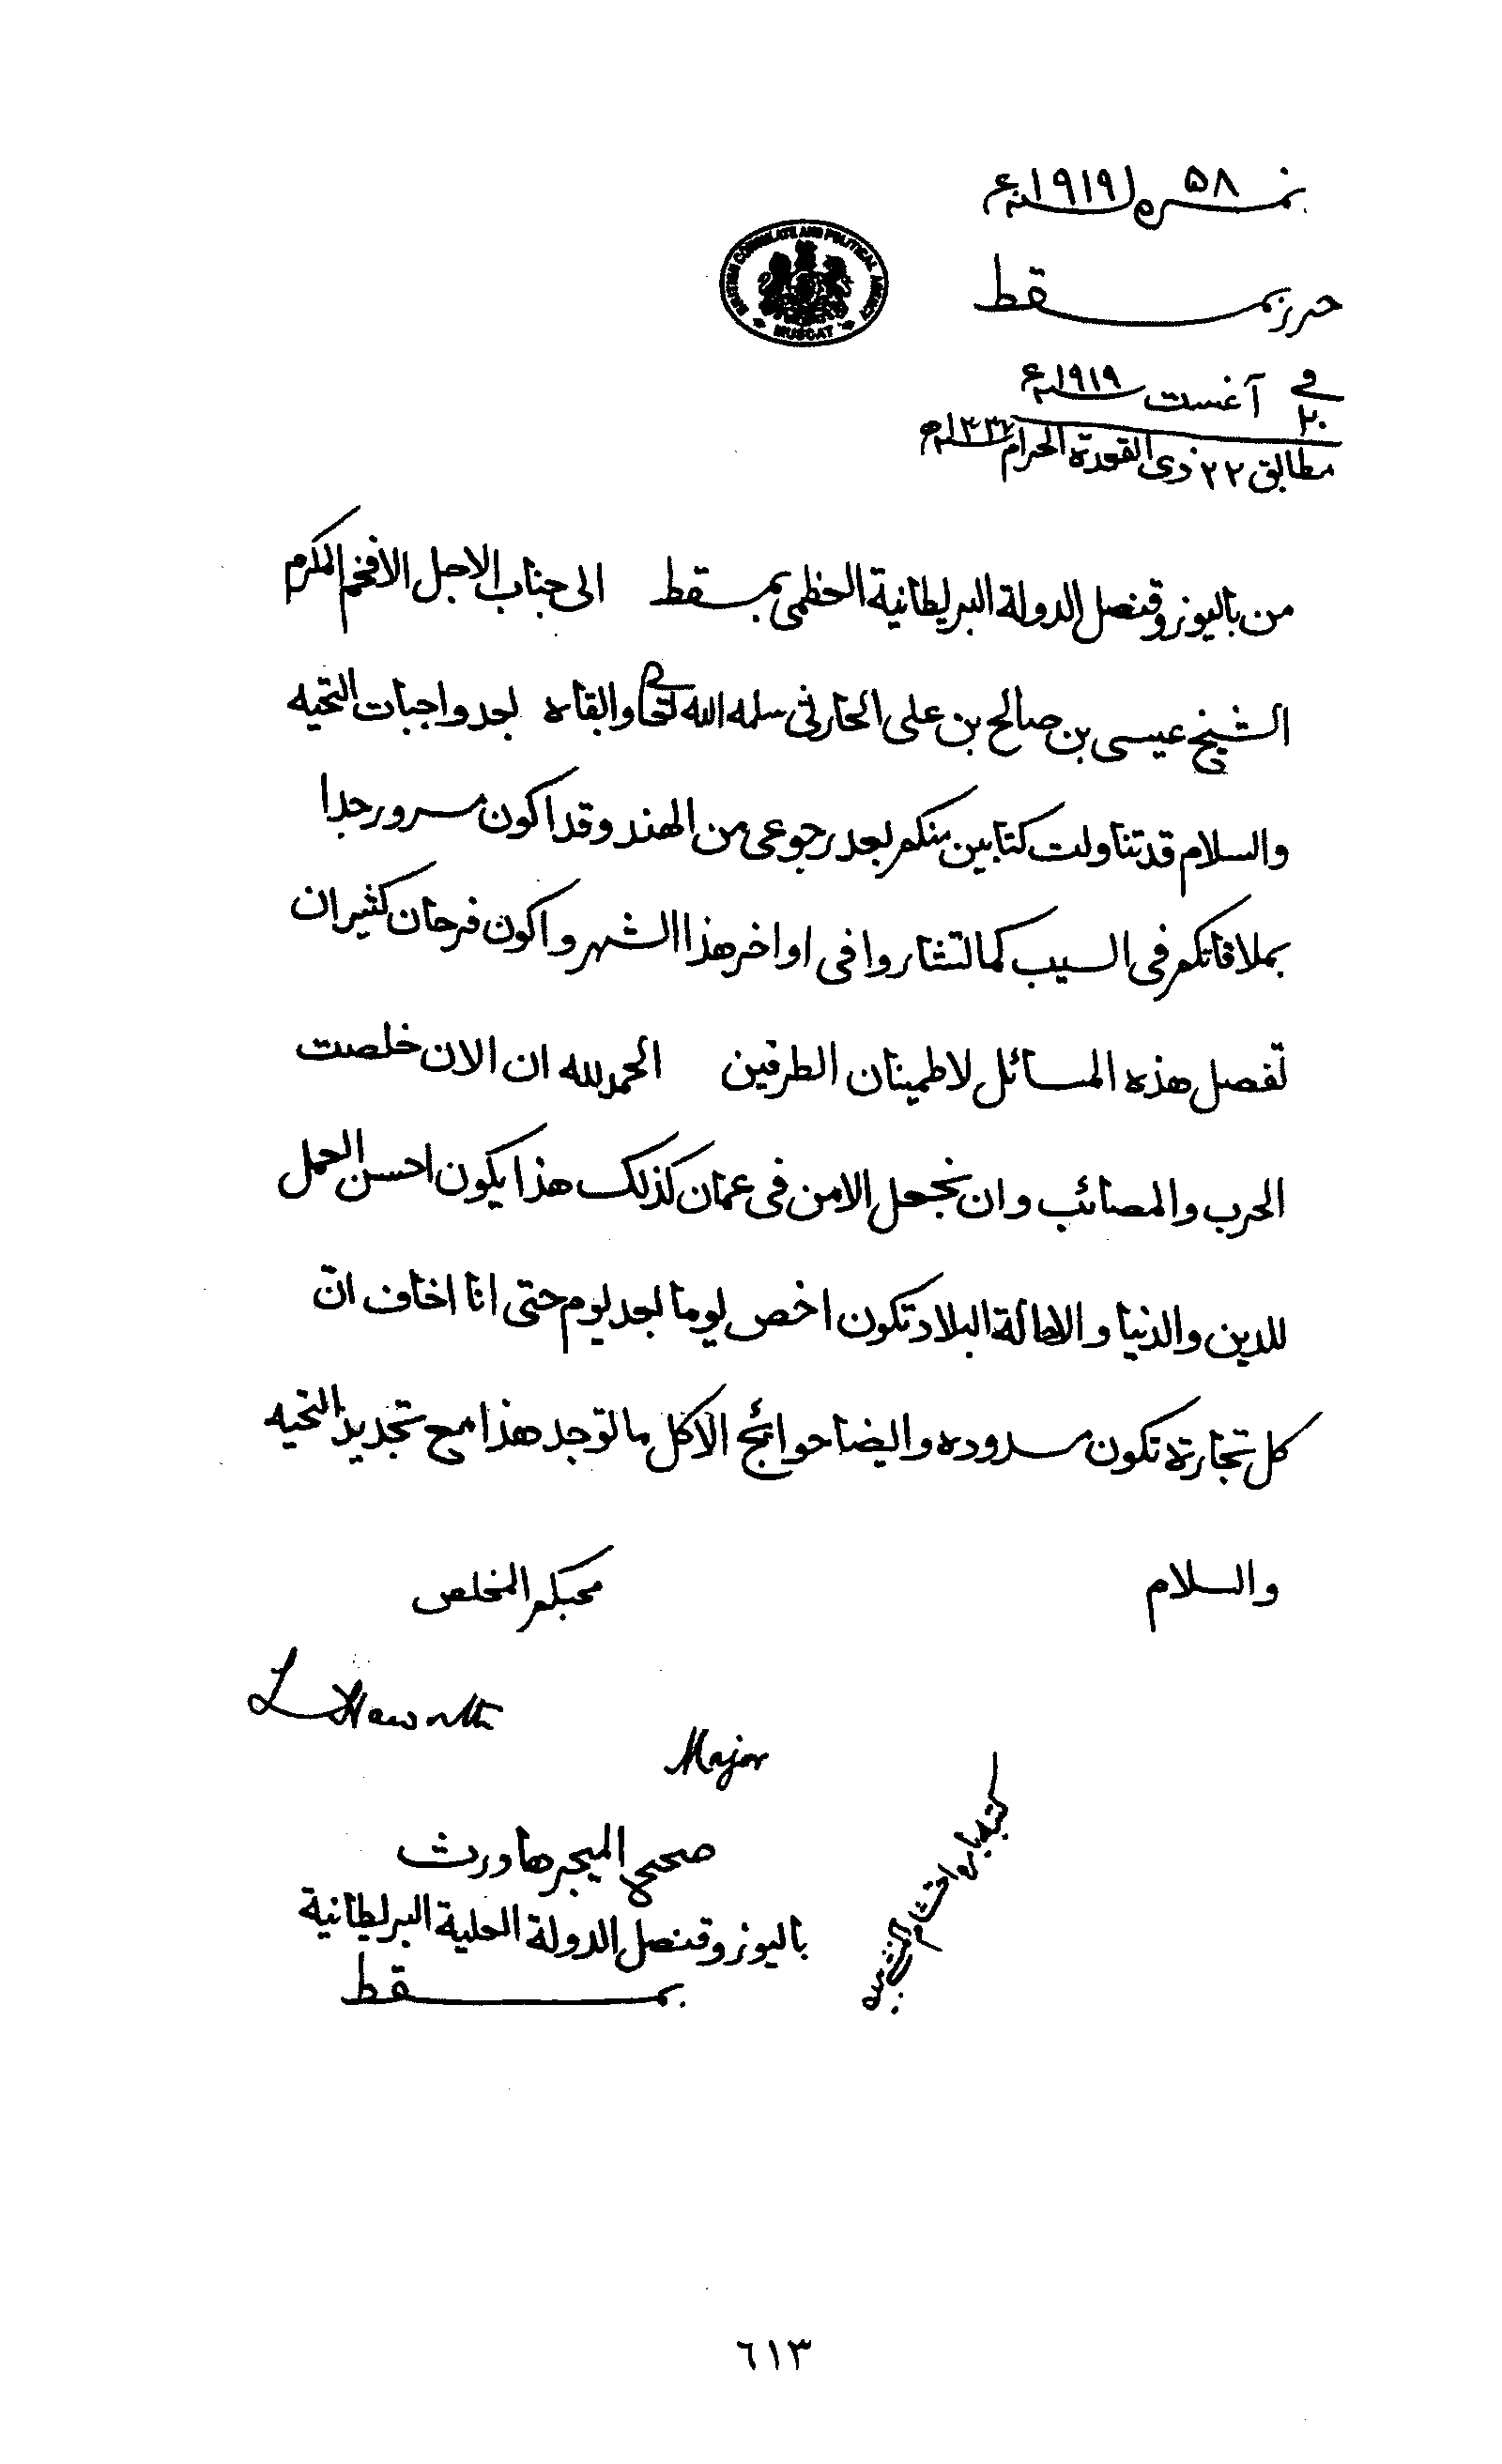 نمره ٥٨ لسنة ١٩١٩ع
BRITISH CONSULATE AND POLITICAL AGENCY
MUSCAT
حرر بمسقط
في ٢٠ آغست سنة ١٩١٩ع
مطابق ٢٢ ذى القعدة الحرام سنة ١٣٣٧ه
من باليوز وقنصل الدولة البريطانية العظمى بمسقط الى جناب الاجل الافخم المكرم
الشيخ عيسى بن صالح بن على الحارثى سلمه الله تعالى وابقاه بعد واجبات التحيه
والسلام قد تناولت كتابين منكم بعد رجوعى من الهند وقد اكون مسرور جدا
بملاقاتكم فى السيب كما تشاروا فى اواخر هذا الشهر واكون فرحان كثير ان
تفصل هذه المسائل لاطمينان الطرفين الحمد لله ان الان خلصت
الحرب والمصائب وان نجعل الامن فى عمان كذلك هذا يكون احسن العمل
للدين والدنيا والا حالة البلاد تكون اخص يوما بعد يوم حتى انا اخاف انّ
كل تجارة تكون مسدوده وايضا حوائج الاكل ما توجد هذا مع تجديد التحيه
والسلام
محبكم المخلص
L Haworth
Major
صحيح الميجر هاورث
باليوز وقنصل الدولة العلية البريطانية
بمسقط
٦١٣